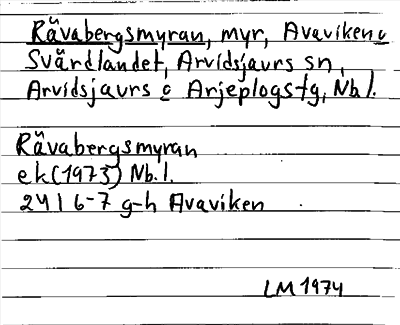 Rävabergsmyran, myr, Avaviken o
Svärdlandet, Arvidsjaurs sn,
Arvidsjaurs o Arjeplogs tg, Nb.l.
Rävabergsmyran
ek (1973) Nb.l.
24 I 6-7 g-h Avaviken
LM 1974